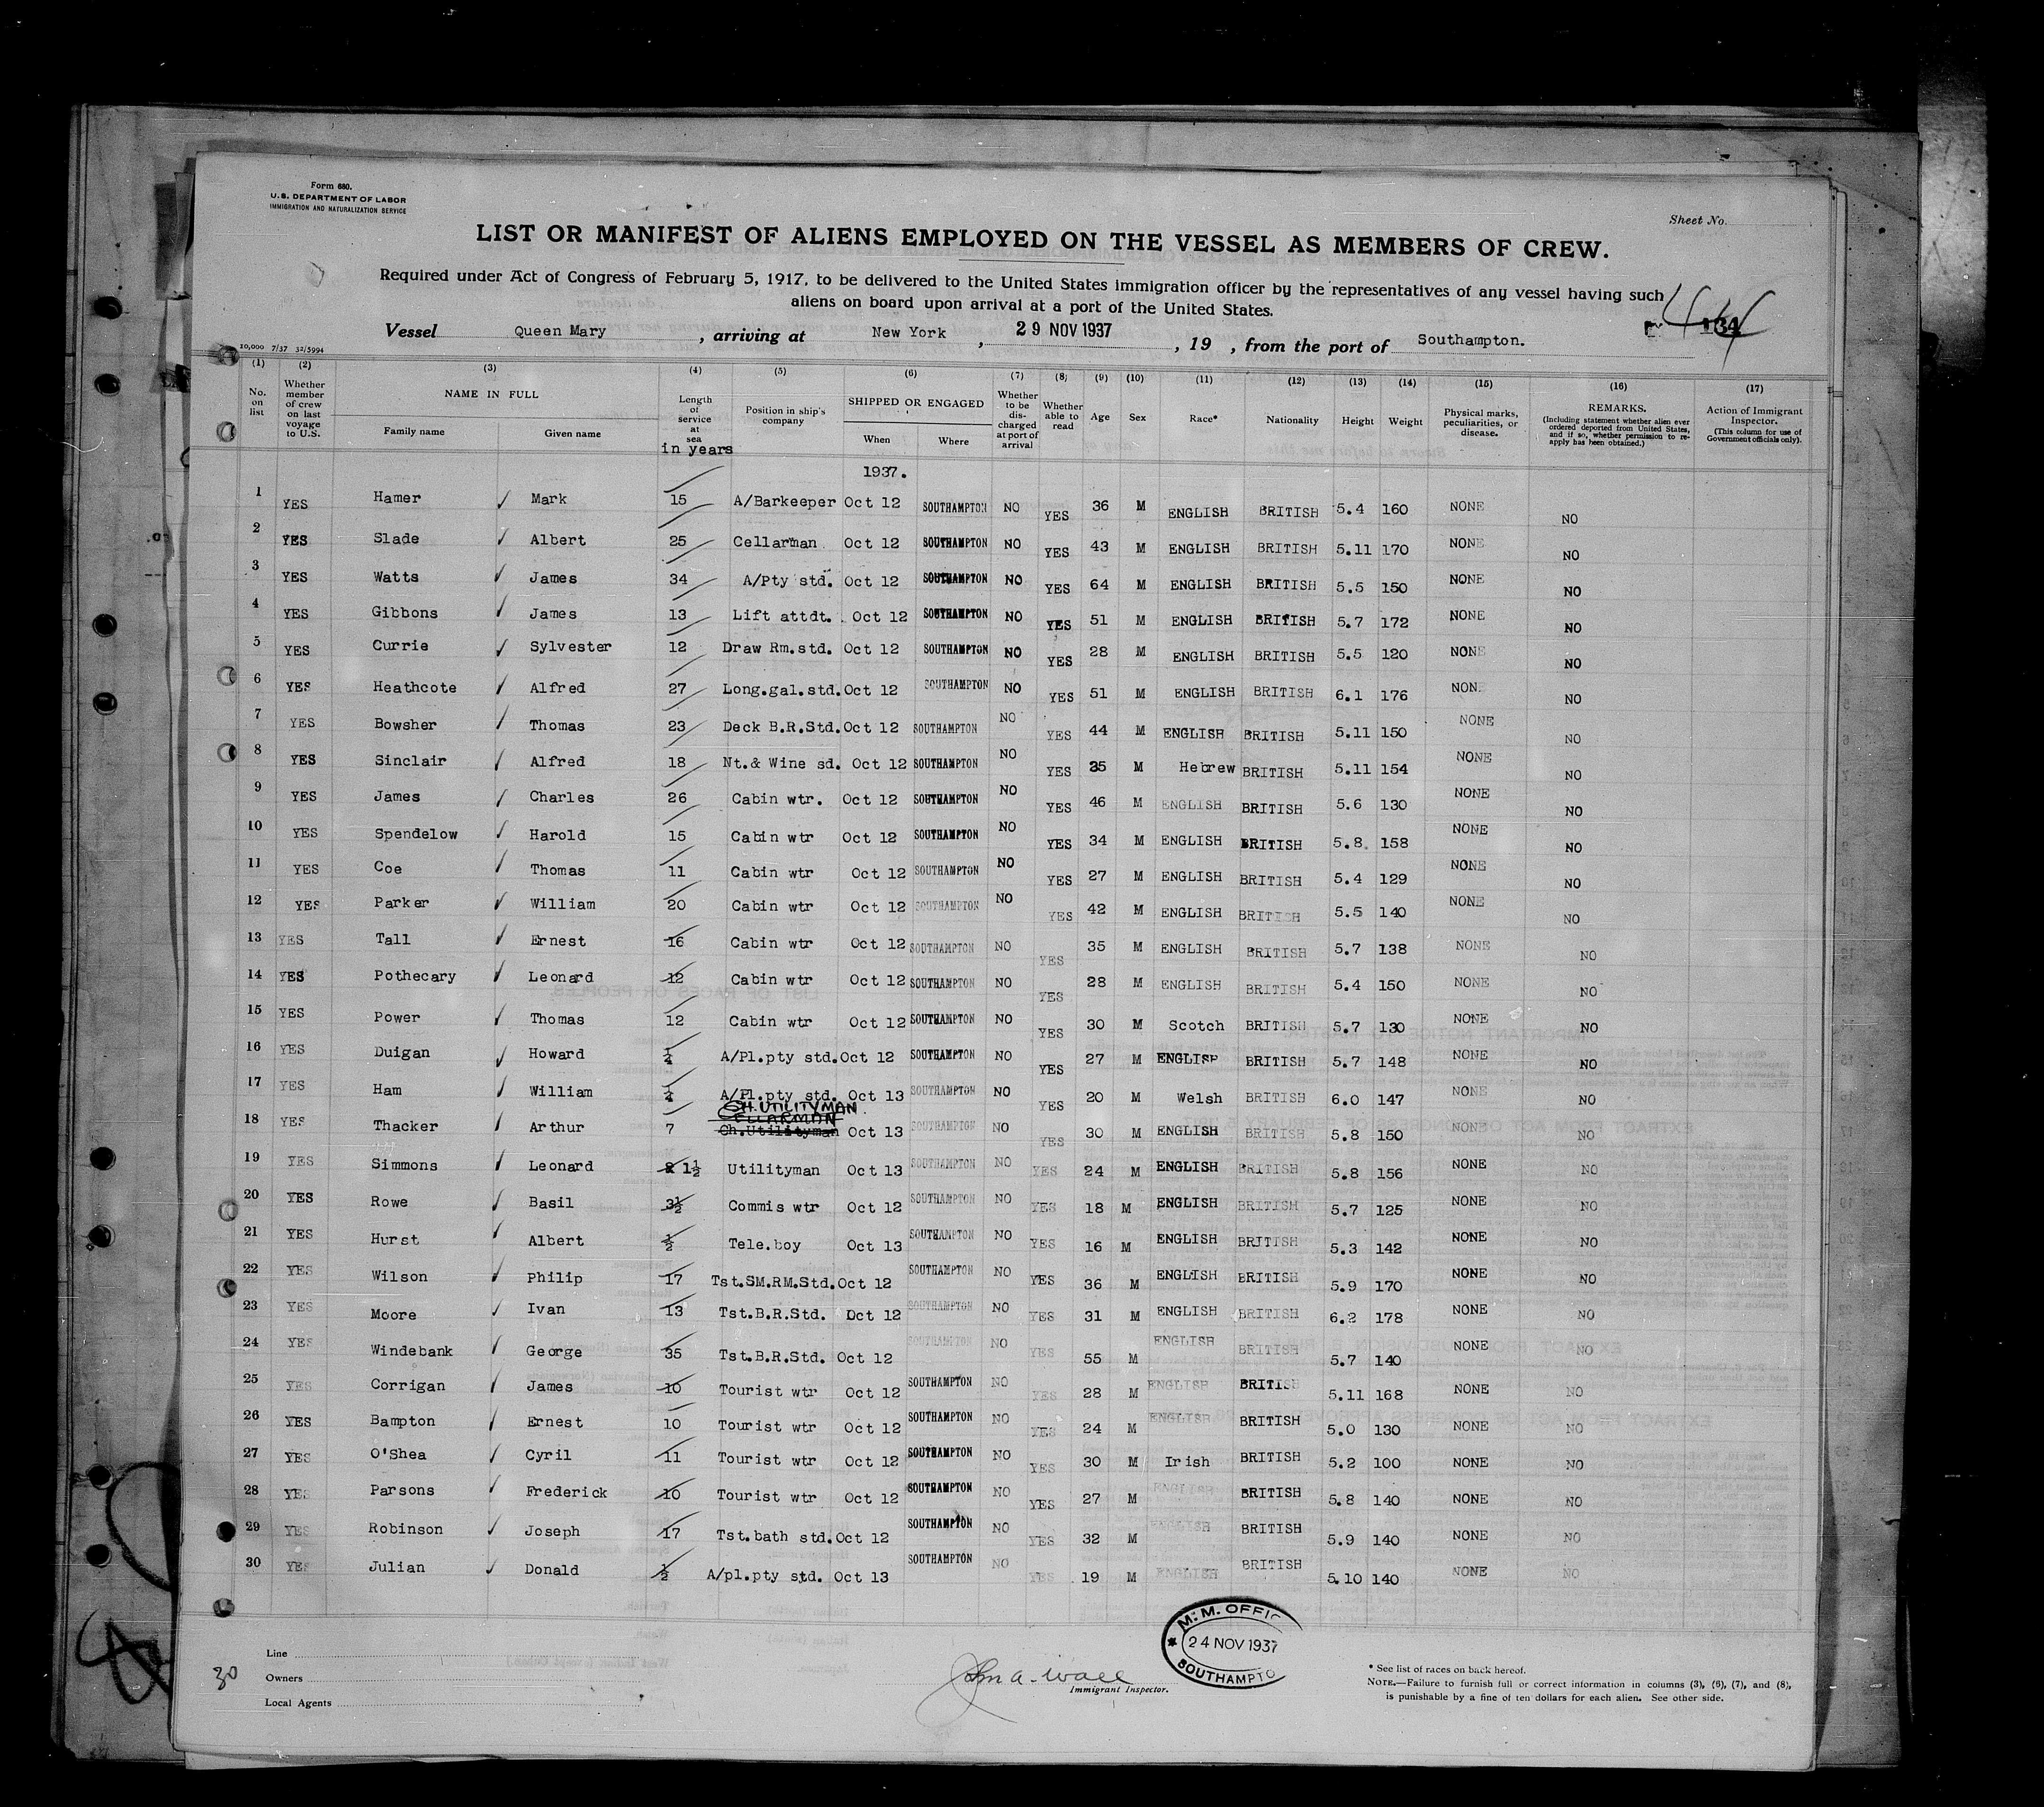 Form 680.
U.S. DEPARTMENT OF LABOR
IMMIGRATION AND NATURALIZATION SERVICE
Sheet No.
LIST OR MANIFEST OF ALIENS EMPLOYED ON THE VESSEL AS MEMBERS OF CREW.
Required under Act of Congress of February 5, 1917, to be delivered to the United States immigration officer by the representatives of any vessel having such
aliens on board upon arrival at a port of the United States.
Vessel Queen Mary , arriving at New York , 29 NOV 1937 , 19 , from the port of Southampton.
134
10,000 7/37 32/5994
(1) (2) (3) (4) (5) (6) (7) (8) (9) (10) (11) (12) (13) (14) (15) (16) (17)
No. on list
Whether member of crew on last voyage to U.S.
NAME IN FULL
Family name Given name
Length of service at sea in years
Position in ship's company
SHIPPED OR ENGAGED
When Where
Whether to be discharged at port of arrival
Whether able to read
Age Sex Race* Nationality Height Weight
Physical marks, peculiarities, or disease.
REMARKS.
(Including statement whether alien ever ordered deported from United States, and if so, whether permission to re-apply has been obtained.)
Action of Immigrant Inspector.
(This column for use of Government officials only).
1937.
1 YES Hamer Mark 15 A/Barkeeper Oct 12 SOUTHAMPTON NO YES 36 M ENGLISH BRITISH 5.4 160 NONE NO
2 YES Slade Albert 25 Cellarman Oct 12 SOUTHAMPTON NO YES 43 M ENGLISH BRITISH 5.11 170 NONE NO
3 YES Watts James 34 A/Pty std. Oct 12 SOUTHAMPTON NO YES 64 M ENGLISH BRITISH 5.5 150 NONE NO
4 YES Gibbons James 13 Lift attdt. Oct 12 SOUTHAMPTON NO YES 51 M ENGLISH BRITISH 5.7 172 NONE NO
5 YES Currie Sylvester 12 Draw Rm.std. Oct 12 SOUTHAMPTON NO YES 28 M ENGLISH BRITISH 5.5 120 NONE NO
6 YES Heathcote Alfred 27 Long.gal.std. Oct 12 SOUTHAMPTON NO YES 51 M ENGLISH BRITISH 6.1 176 NONE NO
7 YES Bowsher Thomas 23 Deck B.R.Std. Oct 12 SOUTHAMPTON NO YES 44 M ENGLISH BRITISH 5.11 150 NONE NO
8 YES Sinclair Alfred 18 Nt.& Wine sd. Oct 12 SOUTHAMPTON NO YES 35 M Hebrew BRITISH 5.11 154 NONE NO
9 YES James Charles 26 Cabin wtr. Oct 12 SOUTHAMPTON NO YES 46 M ENGLISH BRITISH 5.6 130 NONE NO
10 YES Spendelow Harold 15 Cabin wtr Oct 12 SOUTHAMPTON NO YES 34 M ENGLISH BRITISH 5.8. 158 NONE NO
11 YES Coe Thomas 11 Cabin wtr Oct 12 SOUTHAMPTON NO YES 27 M ENGLISH BRITISH 5.4 129 NONE NO
12 YES Parker William 20 Cabin wtr Oct 12 SOUTHAMPTON NO YES 42 M ENGLISH BRITISH 5.5 140 NONE NO
13 YES Tall Ernest 16 Cabin wtr Oct 12 SOUTHAMPTON NO YES 35 M ENGLISH BRITISH 5.7 138 NONE NO
14 YES Pothecary Leonard 12 Cabin wtr Oct 12 SOUTHAMPTON NO YES 28 M ENGLISH BRITISH 5.4 150 NONE NO
15 YES Power Thomas 12 Cabin wtr Oct 12 SOUTHAMPTON NO YES 30 M Scotch BRITISH 5.7 130 NONE NO
16 YES Duigan Howard 1/4 A/Pl.pty std. Oct 12 SOUTHAMPTON NO YES 27 M ENGLISH BRITISH 5.7 148 NONE NO
17 YES Ham William 1/4 A/Pl.pty std. Oct 13 SOUTHAMPTON NO YES 20 M Welsh BRITISH 6.0 147 NONE NO
CH.UTILITYMAN
CELLARMAN
18 YES Thacker Arthur 7 Ch.Utilityman Oct 13 SOUTHAMPTON NO YES 30 M ENGLISH BRITISH 5.8 150 NONE NO
19 YES Simmons Leonard 1½ Utilityman Oct 13 SOUTHAMPTON NO YES 24 M ENGLISH BRITISH 5.8 156 NONE NO
20 YES Rowe Basil 3½ Commis wtr Oct 12 SOUTHAMPTON NO YES 18 M ENGLISH BRITISH 5.7 125 NONE NO
21 YES Hurst Albert ½ Tele.boy Oct 13 SOUTHAMPTON NO YES 16 M ENGLISH BRITISH 5.3 142 NONE NO
22 YES Wilson Philip 17 Tst.SM.RM.Std. Oct 12 SOUTHAMPTON NO YES 36 M ENGLISH BRITISH 5.9 170 NONE NO
23 YES Moore Ivan 13 Tst.B.R.Std. Oct 12 SOUTHAMPTON NO YES 31 M ENGLISH BRITISH 6.2 178 NONE NO
24 YES Windebank George 35 Tst.B.R.Std. Oct 12 SOUTHAMPTON NO YES 55 M ENGLISH BRITISH 5.7 140 NONE NO
25 YES Corrigan James 10 Tourist wtr Oct 12 SOUTHAMPTON NO YES 28 M ENGLISH BRITISH 5.11 168 NONE NO
26 YES Bampton Ernest 10 Tourist wtr Oct 12 SOUTHAMPTON NO YES 24 M ENGLISH BRITISH 5.0 130 NONE NO
27 YES O'Shea Cyril 11 Tourist wtr Oct 12 SOUTHAMPTON NO YES 30 M Irish BRITISH 5.2 100 NONE NO
28 YES Parsons Frederick 10 Tourist wtr Oct 12 SOUTHAMPTON NO YES 27 M ENGLISH BRITISH 5.8 140 NONE NO
29 YES Robinson Joseph 17 Tst.bath std. Oct 12 SOUTHAMPTON NO YES 32 M ENGLISH BRITISH 5.9 140 NONE NO
30 YES Julian Donald ½ A/pl.pty std. Oct 13 SOUTHAMPTON NO YES 19 M ENGLISH BRITISH 5.10 140 NONE NO
Line
Owners
Local Agents
30
Immigrant Inspector.
M.M. OFFIC
24 NOV 1937
SOUTHAMPTO
* See list of races on back hereof.
NOTE.—Failure to furnish full or correct information in columns (3), (6), (7), and (8),
is punishable by a fine of ten dollars for each alien. See other side.